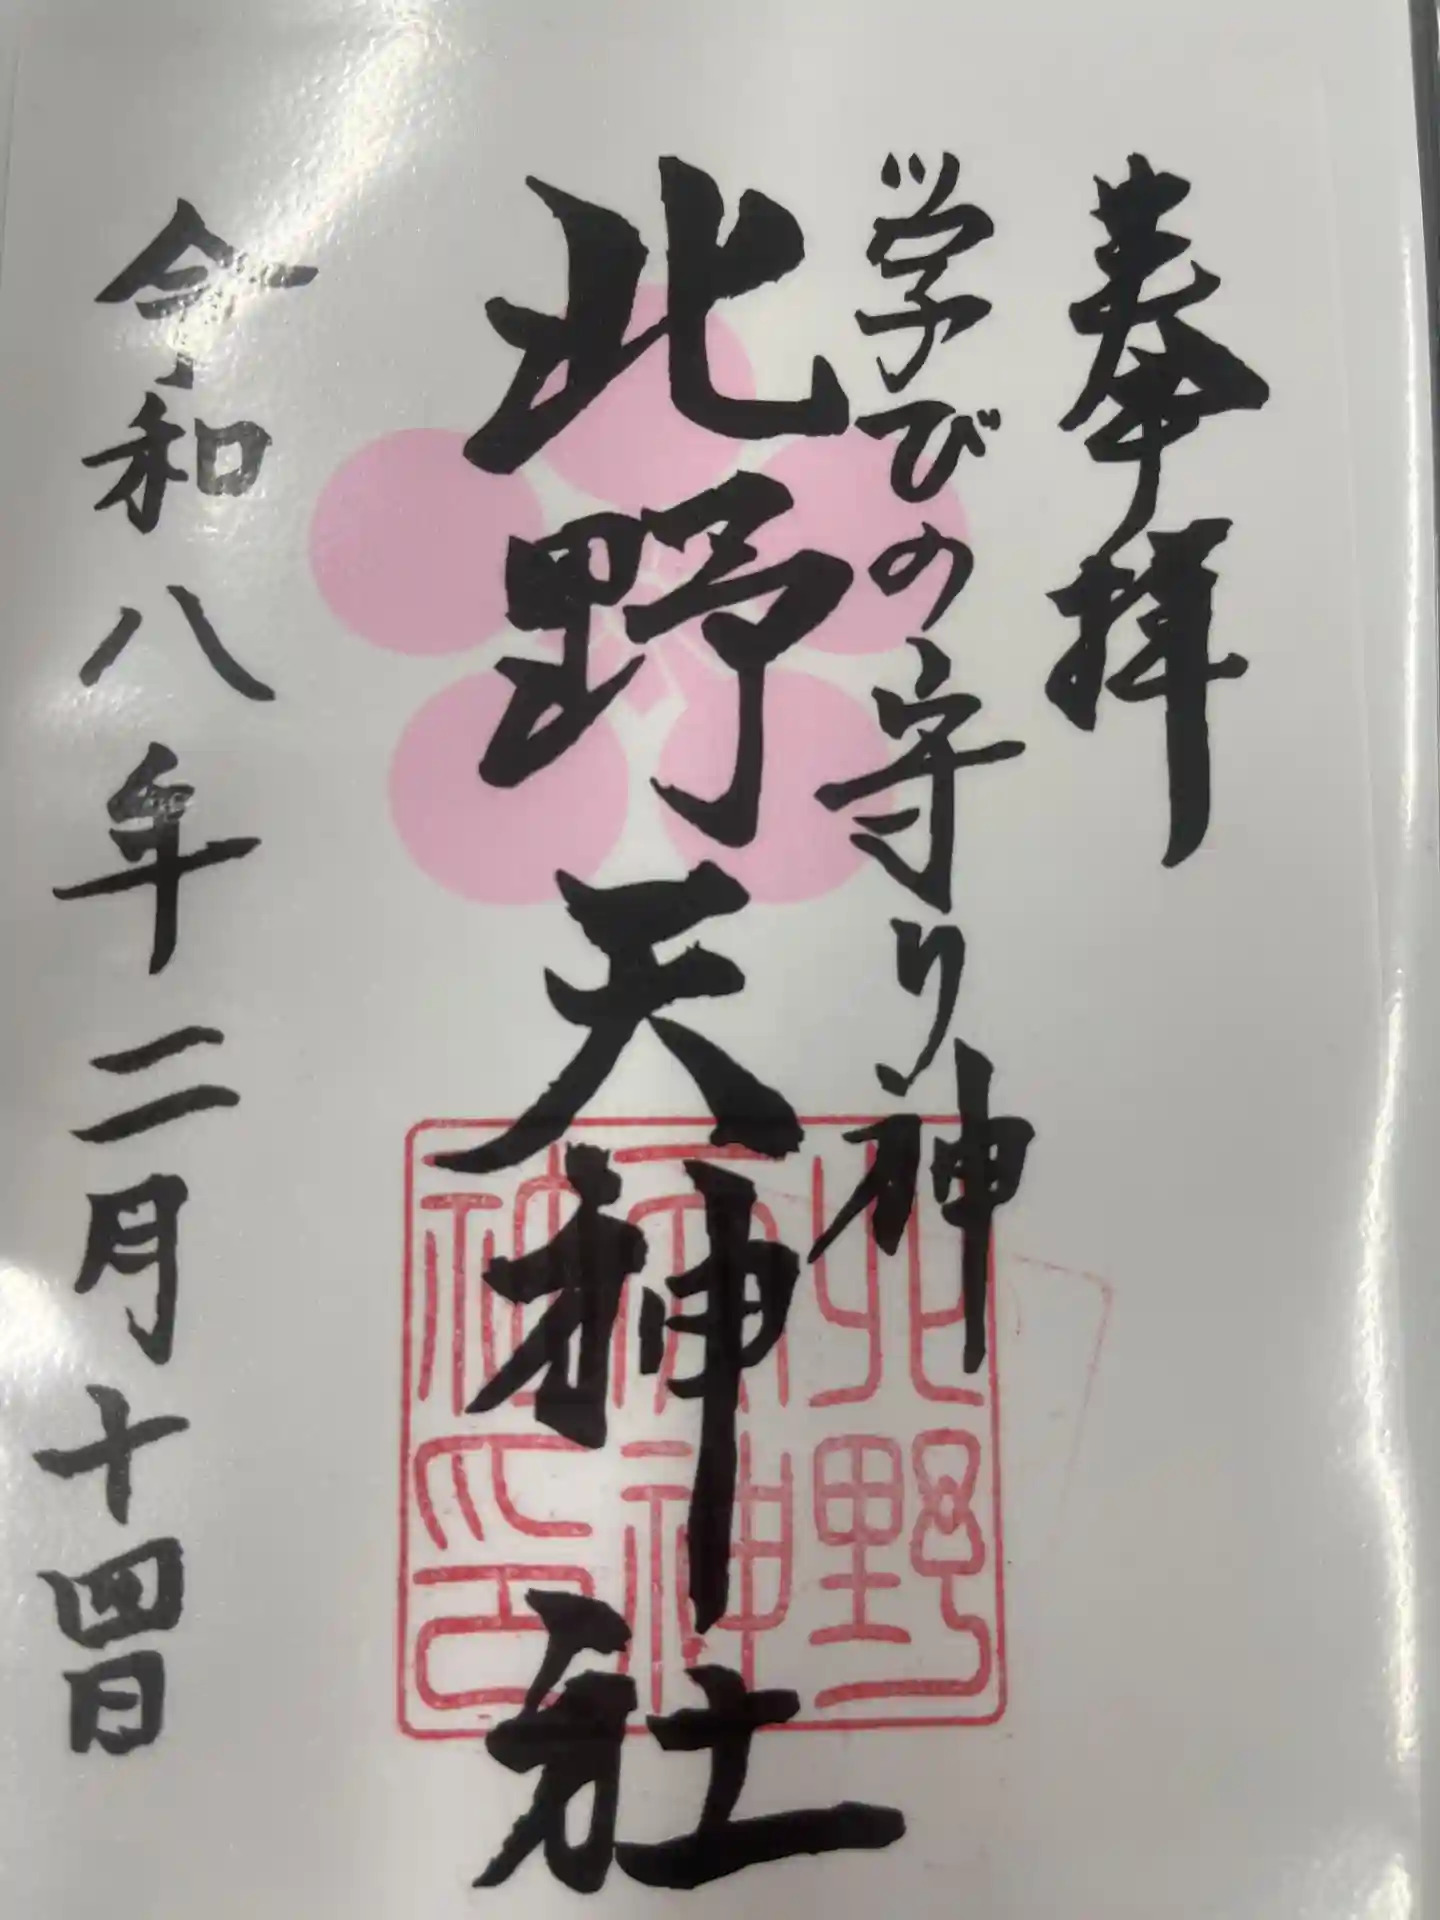 奉拝
学びの守り神
北野天神社
北野
天神
社印
令和八年二月十四日